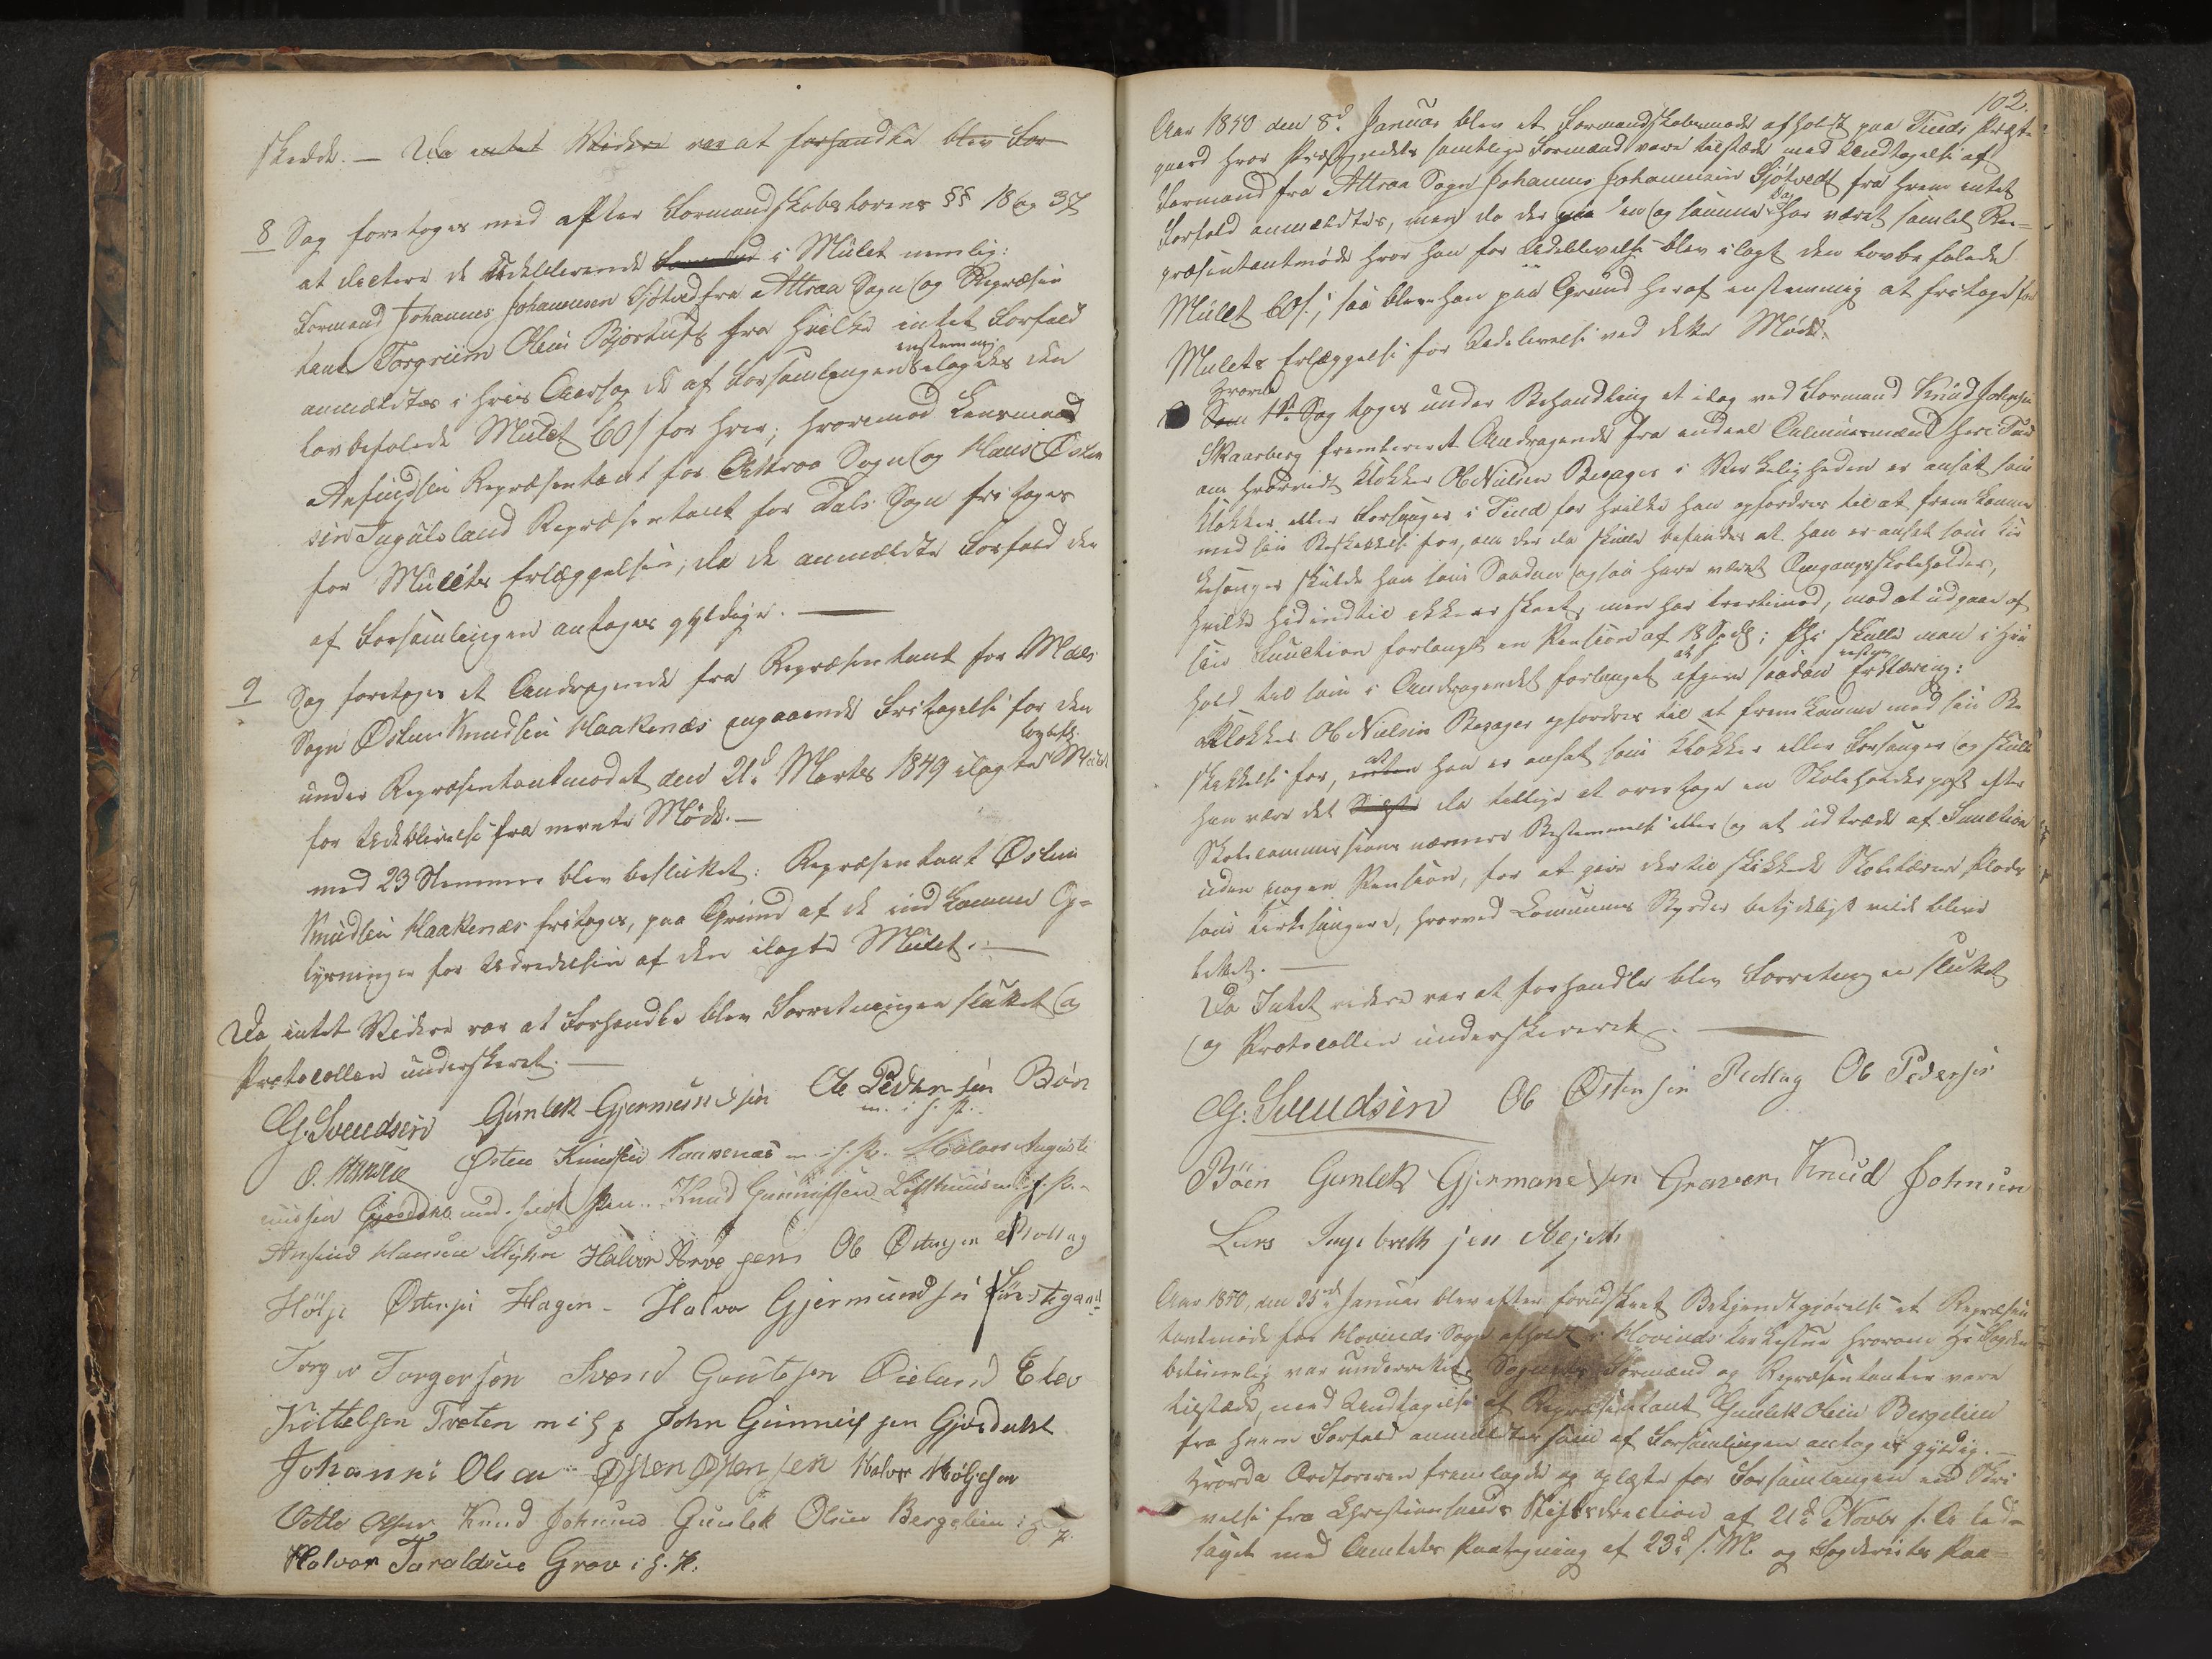 skedde. — Da intet Videre var at forhandle blev For
8 Sag foretoges med efter Formandskabslovens §§ 18 og 37
at dictere de Udeblevende i Mulct nemlig:
Formand Johannes Johannesen Sjøtved fra Attraa Sogn og Repræsen
tant Torgrim Olsen fra hvilke intet Forfald
enstemmig
anmeldtes i hvis Aarsag de af Forsamlingen ilagdes den
lovbefalede Mulct 60 s for hver; hvorimod Lensmand
Anfindsen Repræsentant for Attraa Sogn og Hans Østen
sen Ingulsland Repræsentant for Dals Sogn fritoges
for Mulctens Erlæggelse, da de anmeldte Forfald der
af Forsamlingen antoges gyldige. —
9 Sag foretoges et Andragende fra Repræsentant for Mæls
Sogn Østen Knudsen Haakenæs angaaende Fritagelse for den
under Repræsentantmødet den 21de Martz 1849 ilagte Mulct
for Udeblivelse fra nevnte Møde. —
med 23 Stemmer blev besluttet: Repræsentant Østen
Knudsen Haakenæs fritages, paa Grund af de indkomne Op-
lysninger for Udredelsen af den ilagte Mulct. —
Da intet Videre var at Forhandle blev Forretningen sluttet og
Protocollen underskrevet. —
G. Svendsen Gunlek Gjermundsen Ole Pedersen Böen
m. i h. P.
O. Hansen Østen Knudsen Haakenæs m. i h. P. Halvor Auguste
nussen Gjøsdahl med holdt Pen. Knud Gunnulfsen Lofthuus m. i h. P.
Anfind Hansen Myhre Halvor Arvesen Ole Østensen
Hölje Østensen Hagen - Halvor Gjermundsen
Torger Torgersen Svend Gautesen Øieland Elev
Kittelsen Træten m i h p John Gunnulfsen Gjøsdahl
Johannes Olsen Østen Østensen Halvor Höljesen
Vetle Olsen Knud Johnsen Gunlek Olsen Bergelien i h P.
Halvor Taraldsen Grov i h. P.
102.
Aar 1850 den 8de Januar blev et Formandskabsmøde afholdt paa Tinds Præste
gaard hvor Præstegjeldets samtlige Formænd vare tilstæde med Undtagelse af
Formand fra Attraa Sogn Johannes Johannesen Sjøtvedt fra hvem intet
Dag
Forfald anmeldtes, men da der een og samme har været samlet Re-
præsentantmøde hvor han for Udeblivelse blev ilagt den lovbefalede
Mulct 60 s, saa blev han paa Grund heraf enstemmig at fritage for
Mulcts Erlæggelse for Udeblivelse ved dette Møde.
Hvorda
1ste Sag toges under Behandling et idag ved Formand Knud Johnsen
Skaarberg fremleveret Andragende fra endeel Almuesmænd her i Tind
om hvorvidt Klokker Ole Nielsen Bepager i Virkeligheden er ansat som
Klokker eller Forsanger i Tind for hvilket han opfordres til at fremkomme
med sin Beskikkelse for, om der da skulle befindes at han er ansat som Kir
kesanger skulde han som Saadan ogsaa have været Omgangsskoleholder,
hvilket hidindtil ikke er skeet, men har tvertimod, mod at udgaae af
sin Function forlangt en Pension af 18 Spd; skulle man i Hen
hold til som i Andragendet forlanget afgive saadan Erklæring:
Klokker Ole Nielsen Bepager opfordres til at fremkomme med sin Be
skikkelse for, at han er ansat som Klokker eller Forsanger og skulle
han være det da tillige at overtage en Skoleholderpost efter
Skolecommissionens nærmere Bestemmelse eller og at udtræde af Function
uden nogen Pension, for at give dertil skikkede Skolelærere Plads
som Kirkesangere, hvorved Communens Byrder betydeligt vilde blive
lettet. —
Da Intet videre var at forhandle blev Forretningen sluttet
og Protocollen underskrevet. —
G. Svendsen Ole Østensen Ole Pedersen
Böen Gunlek Gjermundsen Graver Knud Johnsen
Lars Ingebrethsen
Aar 1850, den 25de Januar blev efter forudskeet Bekjendtgjørelse et Repræsen
tantmøde for Hovinds Sogn afholdt i Hovinds Kirkestue hvorom Hr Fogden
betimelig var underrettet. Sognets Formænd og Repræsentanter vare
tilstæde, med Undtagelse af Repræsentant Gunlek Olsen Bergelien
fra hvem Forfald anmeldtes som af Forsamlingen antoges gyldig. —
Hvorda Ordføreren fremlagde og oplæste for Forsamlingen en Skri
velse fra Christiansands Stiftsdirection af 21de Novbr f. A. led-
saget med Amtets Paategning af 23de s. M. og Fogderiets Paa-